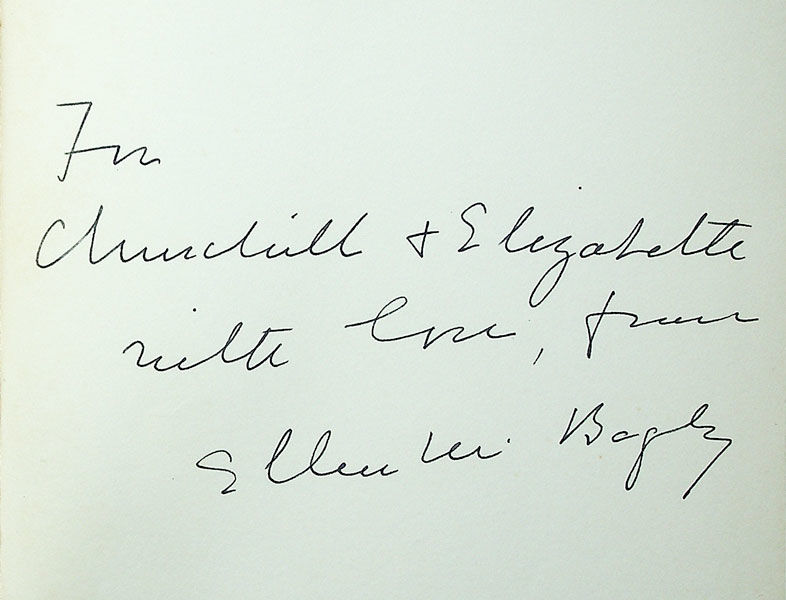 For
Churchill + Elizabeth
with love, from
Ellen M. Bagley